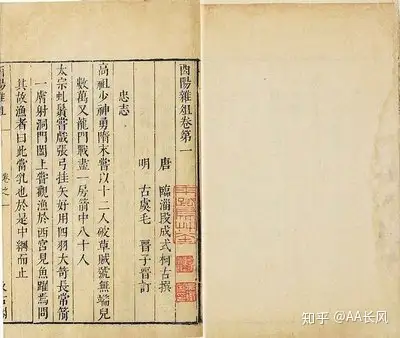 酉陽雜俎卷第一
唐 臨淄段成式柯古撰
明 古虞毛 晉子晉訂
忠志
高祖少神勇隋末嘗以十二人破草賊號無端兒
數萬又龍門戰盡一房箭中八十人
太宗虬鬚嘗戲張弓挂矢好用四羽大笴長常箭
一膚射洞門闔上嘗觀漁於西宮見魚躍焉問
其故漁者曰此當乳也於是中網而止
酉陽雜俎 卷之一
知乎 @AA长风